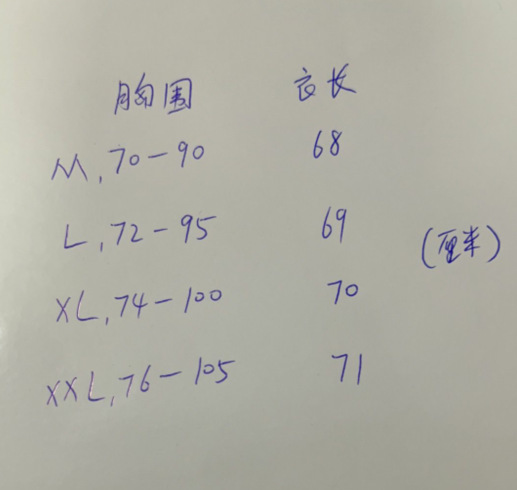 胸围 衣长
M,70-90 68
L,72-95 69
(厘米)
XL,74-100 70
XXL,76-105 71